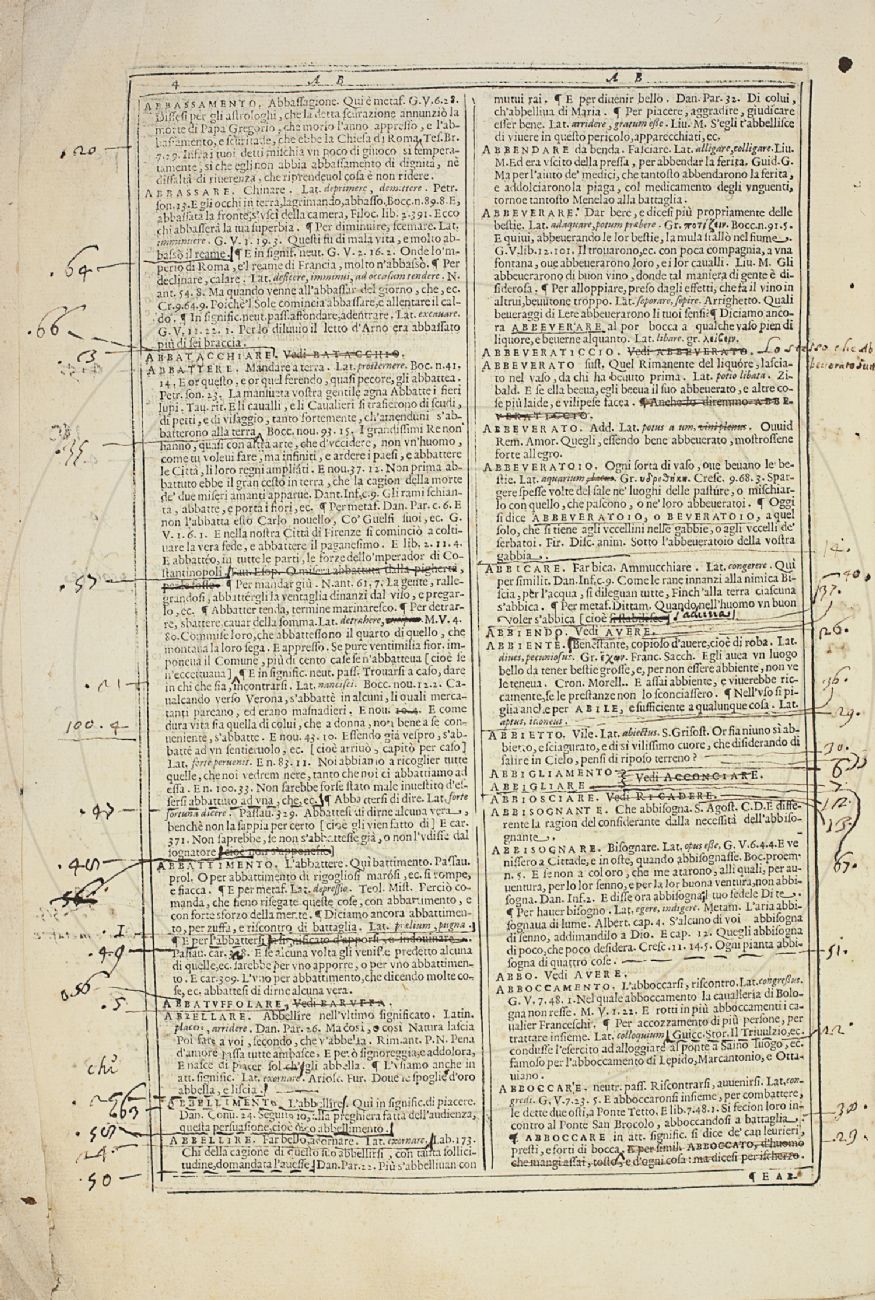 4
A B
A B
ABBASSAMENTO. Abbassagione. Qui è metaf. G.V.6.28.
Dissesi per gli astrologhi, che la detta scurazione annunziò la
morte di Papa Gregorio, che morìo l'anno appresso, e l'ab-
bassamento, e scuritade, che ebbe la Chiesa di Roma, Tes. Br.
7.29. Infra i tuoi detti mischia vn poco di giuoco sì tempera-
tamente, sì che egli non abbia abbassamento di dignità, nè
diffalta di riuerenza, che riprendeuol cosa è non ridere.
ABBASSARE. Chinare. Lat. deprimere, demittere. Petr.
son.13. E gli occhi in terra, lagrimando, abbasso. Bocc. n.89.8. E,
abbassata la fronte, s'vscì della camera, Filoc. lib. 2.391. Ecco
chi abbasserà la tua superbia. ¶ Per diminuire, scemare. Lat.
imminuere. G. V. 1. 19. 3. Questi fu di mala vita, e molto ab-
bassò il reame. ¶ E in signif. neut. G. V. 2. 16. 2. Onde lo'm-
perio di Roma, e'l reame di Francia, molto n'abbassò. ¶ Per
declinare, calare. Lat. deficere, imminui, ad occasum tendere. N.
ant. 54. 8. Ma quando venne all'abbassar del giorno, che, ec.
Cr.9.64.9. Poichè'l Sole comincia abbassare, e allentare il cal-
do. ¶ In signific. neut. pass. affondare, adentrare. Lat. excauare.
G. V. 11. 22. 1. Per lo diluuio il letto d'Arno era abbassato
più di sei braccia.
ABBATACCHIARE. Vedi BATACCHIO.
ABBATTERE. Mandare a terra. Lat. prosternere. Boc. n.41.
14. E or questo, e or quel ferendo, quasi pecore, gli abbattea.
Petr. son. 23. La mansueta vostra gentile agna Abbatte i fieri
lupi. Tau. rit. E li caualli, e li Caualieri si trafierono di scudi,
di petti, e di visaggio, tanto fortemente, ch'amenduni s'ab-
batterono alla terra, Bocc. nou. 93. 15. I grandissimi Re non
hanno, quasi con altra arte, che d'vccidere, non vn'huomo,
come tu voleui fare, ma infiniti, e ardere i paesi, e abbattere
le Città, li loro regni ampliati. E nou. 37. 12. Non prima ab-
battuto ebbe il gran cesto in terra, che la cagion della morte
de' due miseri amanti apparue. Dant. Inf. c.9. Gli rami schian-
ta, abbatte, e porta i fiori, ec. ¶ Per metaf. Dan. Par. c. 6. E
non l'abbatta esto Carlo nouello, Co' Guelfi suoi, ec. G.
V. 1. 6. 1. E nella nostra Città di Firenze si cominciò a colti-
uare la vera fede, e abbattere il paganesimo. E lib. 2. 11. 4.
E abbatteo, in tutte le parti, le forze dello'mperador di Co-
stantinopoli. San. Esop. O misera abbattuta dalla pigherta,
¶ Per mandar giù. N.ant. 61. 7. La gente, ralle-
grandosi, abbattérgli la ventaglia dinanzi dal viso, e pregar-
lo, ec. ¶ Abbatter tenda, termine marinaresco. ¶ Per detrar-
re, sbattere, cauar della somma. Lat. detrahere, M. V. 4.
80. Commise loro, che abbattessono il quarto di quello, che
montaua la loro sega. E appresso. Se pure ventimilia fior. im-
poneua il Comune, più di cento case se n'abbatteua [cioè se
n'eccettuaua]. ¶ E in signific. neut. pass. Trouarsi a caso, dare
in chi che sia, incontrarsi. Lat. nancisci. Bocc. nou. 12. 2. Ca-
ualcando verso Verona, s'abbattè in alcuni, li quali merca-
tanti pareano, ed erano masnadieri. E nou. 10.4. E come
dura vita sia quella di colui, che a donna, non bene a se con-
ueniente, s'abbatte. E nou. 43. 10. Essendo già vespro, s'ab-
battè ad vn sentieruolo, ec. [cioè arriuò, capitò per caso]
Lat. forte peruenit. En. 83. 11. Noi abbiamo a ricoglier tutte
quelle, che noi vedrem nere, tanto che noi ci abbattiamo ad
essa. E n. 100.33. Non sarebbe forse stato male inuestito d'es-
sersi abbattuto ad vna, che, ec.] ¶ Abbattersi di dire. Lat. forte
fortuna dicere. Passau. 329. Abbattesi di dirne alcuna vera,
benchè non la sappia per certo [cioè gli vien fatto di] E car.
371. Non saprebbe, se non s'abbattesse già, o non l'vdisse dal
sognatore [cioè non s'apponesse]
ABBATTIMENTO. L'abbattere. Qui battimento. Passau.
prol. O per abbattimento di rigogliosi marosi, ec. si rompe,
e fiacca. ¶ E per metaf. Lat. depressio. Teol. Mist. Perciò co-
manda, che sieno risegate queste cose, con abbattimento, e
con forte sforzo della mente. ¶ Diciamo ancora abbattimen-
to, per zuffa, e riscontro di battaglia. Lat. prœlium, pugna.
¶ E per l'abbattersi in significato d'apporsi, o indouinare.
Passau. car. E se alcuna volta gli venisse predetto alcuna
di quelle, ec. sarebbe per vno apporre, o per vno abbattimen-
to. E car. 309. L'vno per abbattimento, che dicendo molte co-
se, ec. abbattesi di dirne alcuna vera.
ABBATVFFOLARE. Vedi BARVFFA.
ABBELLARE. Abbellire nell'vltimo significato. Latin.
placere, arridere. Dan. Par. 26. Ma così, o così Natura lascia
Poi fare a voi, secondo, che v'abbella. Rim. ant. P. N. Pena
d'amore passa tutte ambasce, E però signoreggia, e addolora,
E nasce di piacer sol, ch'gli abbella. ¶ L'vsiamo anche in
att. signific. Lat. exornare. Arios. Fur. Doue le spoglie d'oro
abbella, e liscia.
ABBELLIMENTO. L'abbellirsi. Qui in signific. di piacere.
Dan. Conu. 24. Seguito io, alla preghiera fatta dell'audienza,
questa persuasione, cioè dico abbellimento.
ABBELLIRE. Far bello, adornare. Lat. exornare. Lab. 173.
Chi della cagione di questo suo abbellirsi, con tanta sollici-
tudine, domandata l'auesse. Dan. Par. 22. Più s'abbelliuan con
mutui rai. ¶ E per diuenir bello. Dan. Par. 32. Di colui,
ch'abbelliua di Maria. ¶ Per piacere, aggradire, giudicare
esser bene. Lat. arridere, gratum esse. Liu. M. S'egli t'abbellisce
di viuere in questo pericolo, apparecchiati, ec.
ABBENDARE da benda. Fasciare. Lat. alligare, colligare. Liu.
M. Ed era vscito della pressa, per abbendar la ferita. Guid. G.
Ma per l'aiuto de' medici, che tantosto abbendarono la ferita,
e addolciarono la piaga, col medicamento degli vnguenti,
tornoe tantosto Menelao alla battaglia.
ABBEVERARE. Dar bere, e dicesi più propriamente delle
bestie. Lat. adaquare, potum præbere. Gr. ποτίζειν. Bocc. n.91. 5.
E quiui, abbeuerando le lor bestie, la mula stallò nel fiume.
G. V. lib. 12. 101. Il trouarono, ec. con poca compagna, a vna
fontana, oue abbeuerauono loro, e i lor caualli. Liu. M. Gli
abbeuerarono di buon vino, donde tal maniera di gente è di-
siderosa. ¶ Per alloppiare, preso dagli effetti, che fa il vino in
altrui, beuutone troppo. Lat. soporare, sopire. Arrighetto. Quali
beueraggi di Lete abbeuerarono li tuoi sensi. ¶ Diciamo anco-
ra ABBEVERARE al por bocca a qualche vaso pien di
liquore, e beuerne alquanto. Lat. libare. gr. λείβειν.
ABBEVERATICCIO. Vedi ABBEVERATO. Lo stesso che Ab-
beuerato sust
ABBEVERATO sust. Quel Rimanente del liquore, lascia-
to nel vaso, da chi ha beuuto prima. Lat. potio libata. Zi-
bald. E se ella beuea, egli beuea il suo abbeuerato, e altre co-
se più laide, e vili pe se facea. ¶ Anche lo diremmo ABBE-
VERATICCIO.
ABBEVERATO. Add. Lat. potus a um. Ouuid
Rem. Amor. Quegli, essendo bene abbeuerato, mostrossene
forte allegro.
ABBEVERATOIO. Ogni sorta di vaso, oue beuano le be-
stie. Lat. aquarium. Gr. ὑδροθήκη. Cresc. 9.68.3. Spar-
gere spesse volte del sale ne' luoghi delle pasture, o mischiar-
lo con quello, che pascono, o ne' loro abbeueratoi. ¶ Oggi
si dice ABBEVERATOIO, o BEVERATOIO, a quel
solo, che si tiene agli vccellini nelle gabbie, o agli vccelli de'
serbatoi. Fir. Disc. anim. Sotto l'abbeueratoio della vostra
gabbia.
ABBICARE. Far bica. Ammucchiare. Lat. congerere. Qui
per similit. Dan. Inf. c.9. Come le rane innanzi alla nimica Bi-
scia, per l'acqua, si dileguan tutte, Finch'alla terra ciascuna
s'abbica. ¶ Per metaf. Dittam. Quando nell'huomo vn buon
voler s'abbica [cioè s'aduna]
ABBIENDO. Vedi AVERE.
ABBIENTE. Benestante, copioso d'auere, cioè di roba. Lat.
diues, pecuniosus. Gr. ἔχων. Franc. Sacch. Egli auea vn luogo
bello da tener bestie grosse, e, per non essere abbiente, non ve
le teneua. Cron. Morell. E assai abbiente, e viuerebbe ric-
camente, se le prestanze non lo sconciassero. ¶ Nell'vso si pi-
glia anche per ABILE, e sufficiente a qualunque cosa. Lat.
aptus, idoneus.
ABBIETTO. Vile. Lat. abiectus. S. Grisost. Or sia niuno sì ab-
bietto, e sciagurato, e di sì vilissimo cuore, che disiderando di
salire in Cielo, pensi di riposo terreno?
ABBIGLIAMENTO
Vedi ACCONCIARE.
ABBIGLIARE
ABBIOSCIARE. Vedi RICADERE.
ABBISOGNANTE. Che abbisogna. S. Agost. C. D. E diffe-
rente la ragion del considerante dalla necessità dell'abbiso-
gnante.
ABBISOGNARE. Bisognare. Lat. opus esse. G. V. 6.4.4. E ve
nissero a Cittade, e in oste, quando abbisognasse. Boc. proem.
n. 5. E se non a coloro, che me atarono, alli quali, per au-
uentura, per lo lor senno, e per la lor buona ventura, non abbi-
sogna. Dan. Inf. 2. E disse ora abbisogna il tuo fedele Di te.
¶ Per hauer bisogno. Lat. egere, indigere. Metam. L'aria abbi-
sognaua di lume. Albert. cap. 4. S'alcuno di voi abbisogna
di senno, addimandilo a Dio. E cap. 12. Quegli abbisogna
di poco, che poco desidera. Cresc. 11. 14. 5. Ogni pianta abbi-
sogna di quattro cose.
ABBO. Vedi AVERE.
ABBOCCAMENTO. L'abboccarsi, riscontro. Lat. congressus.
G. V. 7. 48. 1. Nel quale abboccamento la caualleria di Bolo-
gna non resse. M. V. 1. 22. E rotti in più abboccamenti i ca-
ualier Franceschi. ¶ Per accozzamento di più persone, per
trattare insieme. Lat. colloquium. Guicc. Stor. Il Triuulzio, ec.
condusse l'esercito ad alloggiare al ponte a Saino luogo, ec.
famoso per l'abboccamento di Lepido, Marcantonio, e Otta-
uiano.
ABBOCCARE. neutr. pass. Riscontrarsi, auuenirsi. Lat. con-
gredi. G.V.7.23. 5. E abboccaronsi insieme, per combattere,
le dette due osti, a Ponte Tetto. E lib. 7.48.1. Si fecion loro in-
contro al Ponte San Brocolo, abboccandosi a battaglia.
¶ ABBOCCARE in att. signific. si dice de' can leurieri,
presti, e forti di bocca. E per simil. ABBOCCATO, d'huomo
che mangi assai, tosto, e d'ogni cosa: ma dicesi per ischerzo.
¶ E AB-
20
64
66
3
15
57
21
100. 4
47
40
1
49
656
5
chi
256
663
508
24
50
14.
40
37.
26.
36.
29.
30.
6
7
12.
13.
67.
51.
22.
38
29